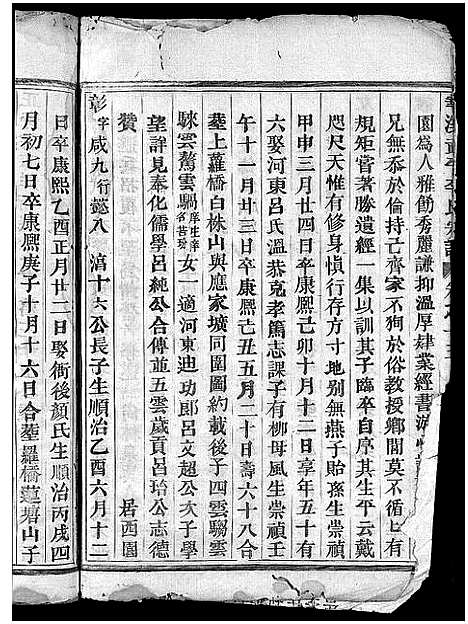 園為人雅飭秀麗謙抑溫厚肄業經書
兄無忝於倫持己齊家不狥於俗教授鄉閭莫不循循有
規矩嘗著勝遺經一集以訓其子臨卒自序其生平云戴
咫尺天惟有修身慎行存方寸地别無燕子貽孫生崇禎
甲申三月廿四日卒康熙己卯十月十二日享年五十有
六娶河東呂氏溫恭克孝篤志課子有柳母風生崇禎壬
午十一月廿三日卒康熙己丑五月二十日壽六十八合
塟上蘿橋白株山與應家壙同圍圖約載後子四雲騶雲
騋雲騖雲驌庠生譜名若珍女一適河東迪功郎呂文超公次子學
望詳見奉化儒學呂純公合傳並五雲歲貢呂珆公志德
贊 居西園
彰字咸九行懿八 湻十六公長子生順治乙酉六月十二
日卒康熙乙酉正月廿二日娶衙後顏氏生順治丙戌四
月初七日卒康熙庚子十月十六日合塟羅橋蓮塘山子